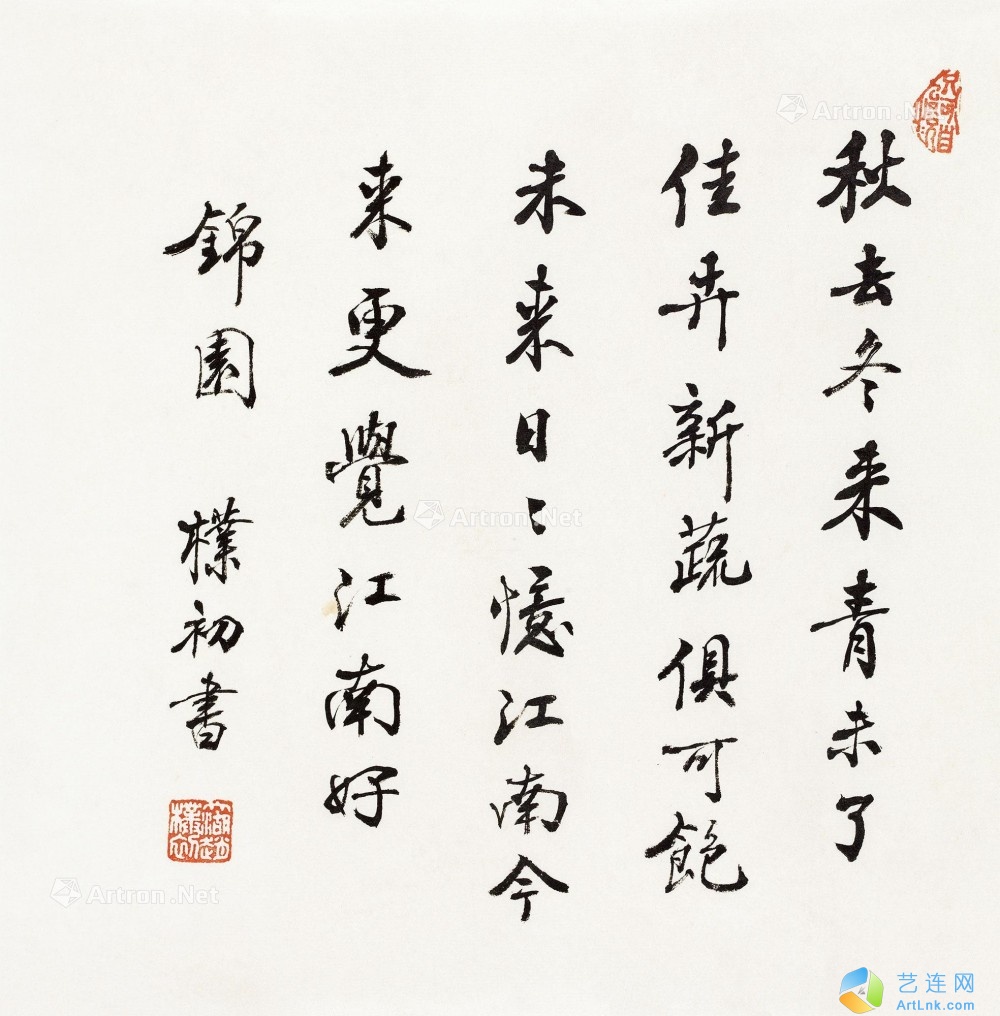 秋去冬来青未了
佳卉新蔬俱可飽
未来日〻憶江南今
来更覺江南好
錦園 樸初書
Artron.Net
Artron.Net
Artron.Net
艺连网
ArtLnk.com